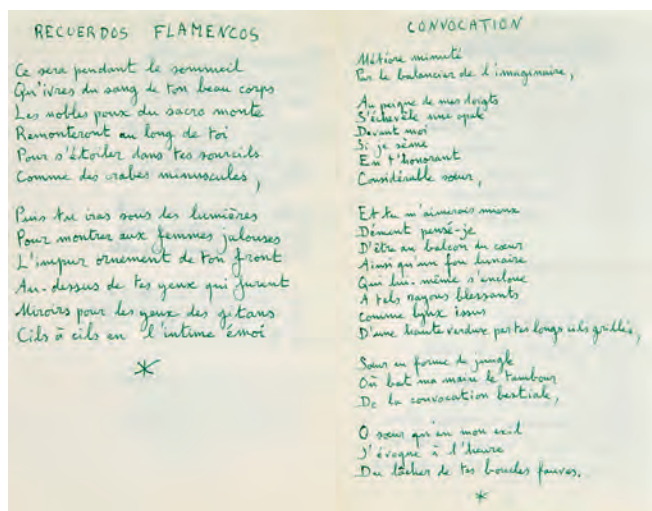 RECUERDOS FLAMENCOS
Ce sera pendant le sommeil
Qu'ivres du sang de ton beau corps
Les nobles poux du sacro monte
Remonteront au long de toi
Pour s'étoiler dans tes sourcils
Comme des crabes minuscules,
Puis tu iras sous les lumières
Pour montrer aux femmes jalouses
L'impur ornement de ton front
Au-dessus de tes yeux qui furent
Miroirs pour les yeux des gitans
Cils à cils en l'intime émoi
*
CONVOCATION
Météore minuté
Par le balancier de l'imaginaire,
Au peigne de mes doigts
S'échevèle une opale
Devant moi
Si je sème
En t'honorant
Considérable sœur,
Et tu m'aimerais mieux
Dément pensé-je
D'être au balcon du cœur
Ainsi qu'un fou lunaire
Qui lui-même s'encloue
A tels rayons blessants
Comme lynx issus
D'une haute verdure par tes longs cils grillée,
Sœur en forme de jungle
Où bat ma main le tambour
De la convocation bestiale,
O sœur qu'en mon exil
J'évoque à l'heure
Du lâcher de tes boucles fauves.
*